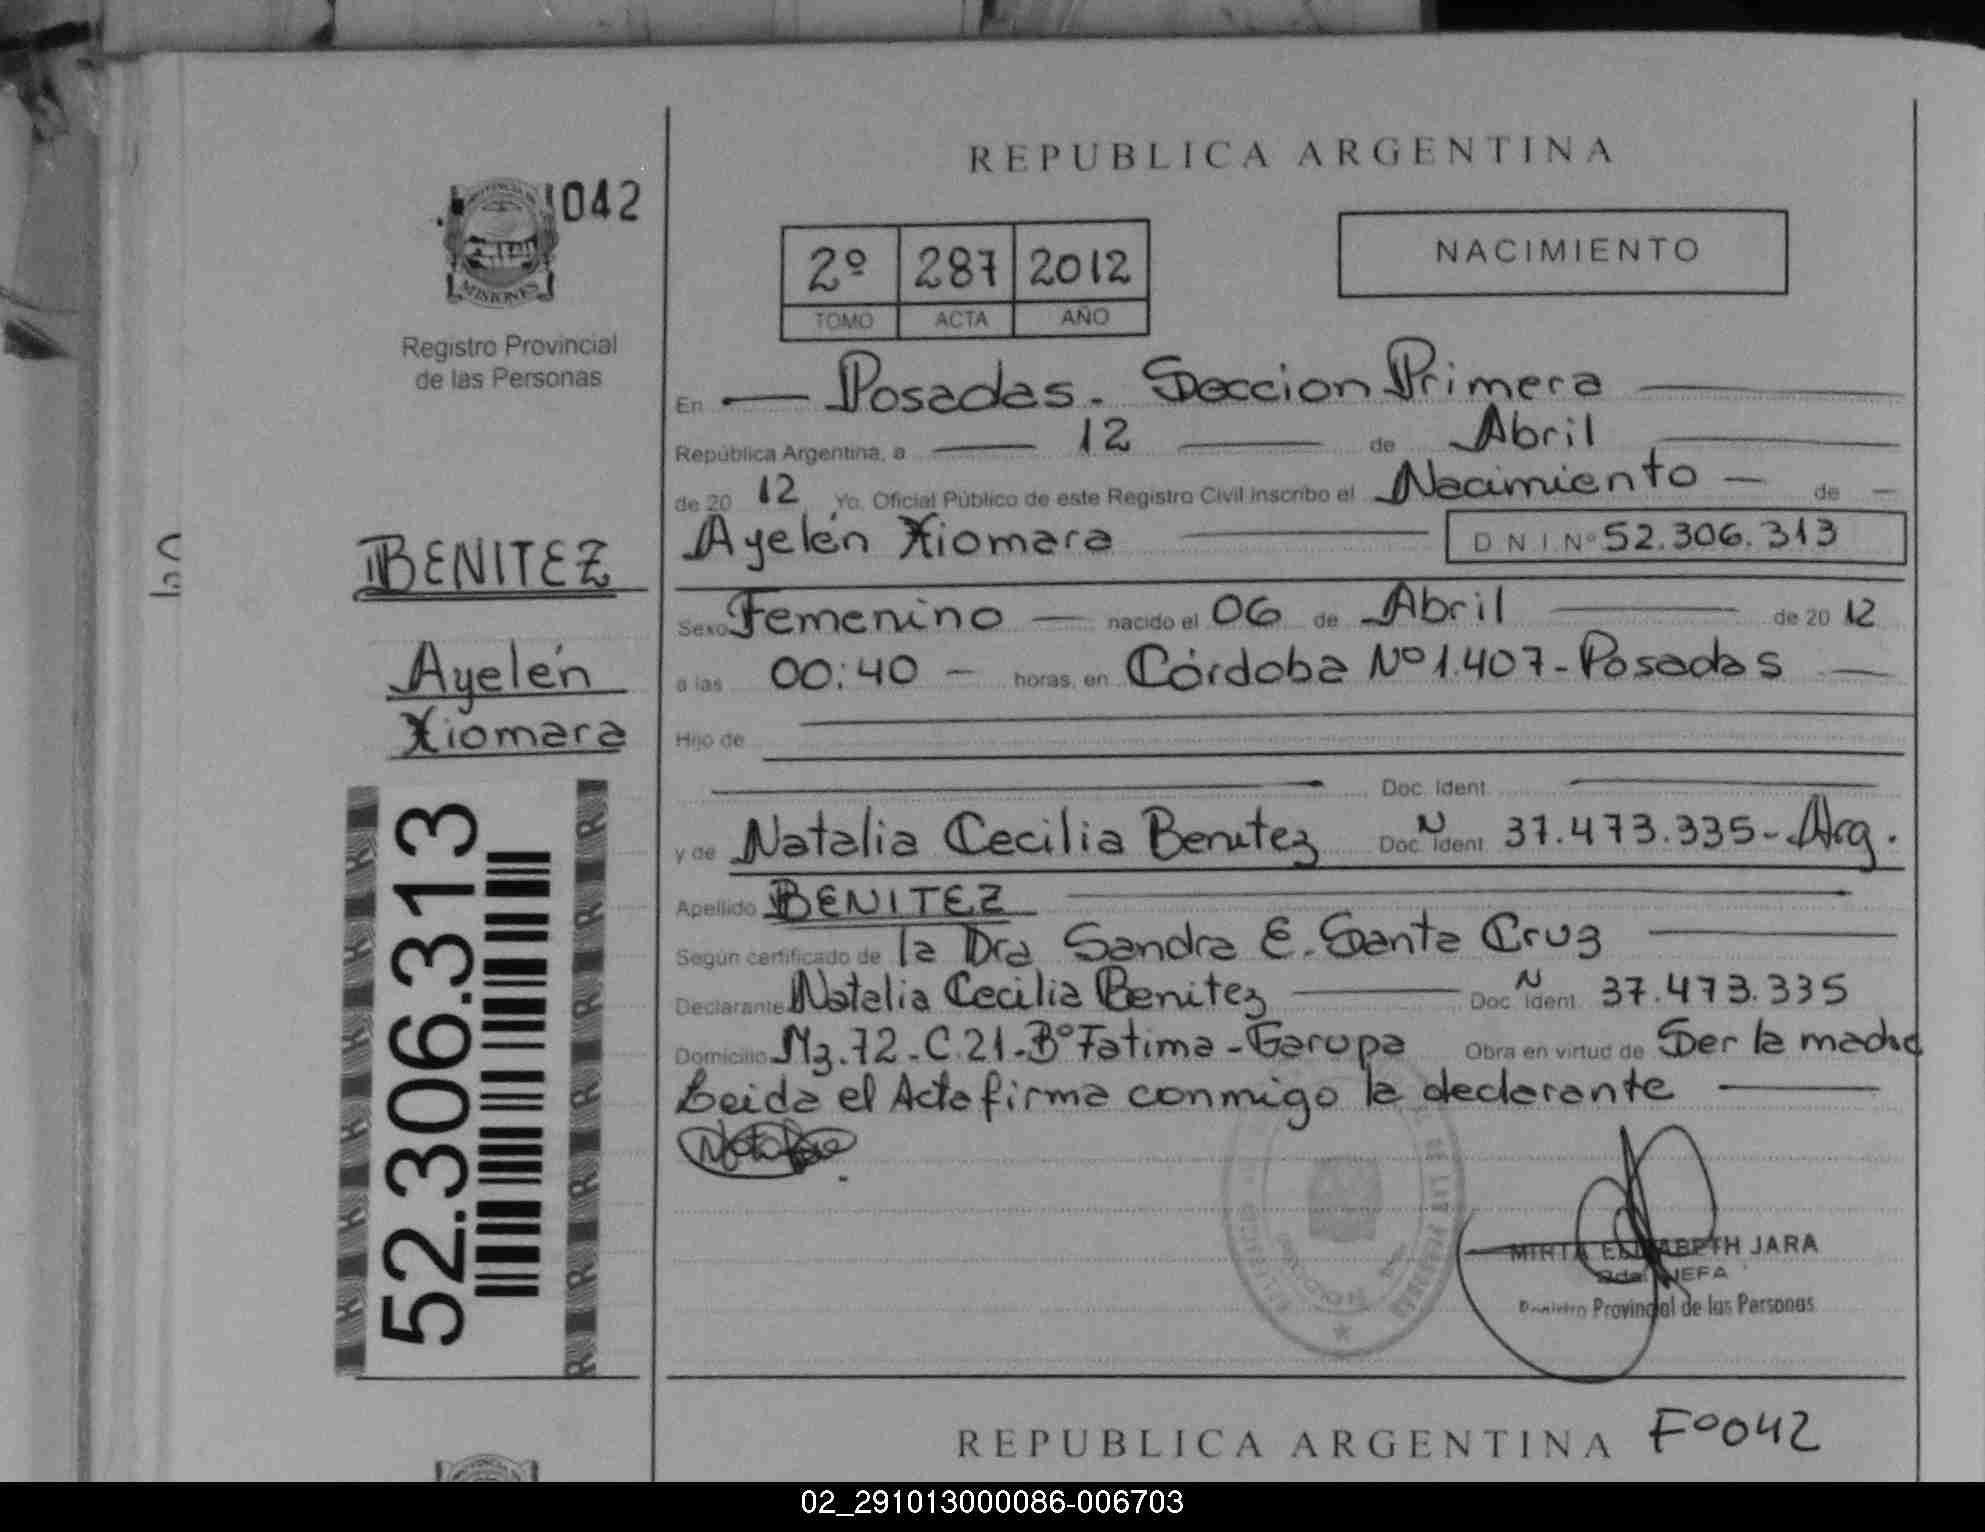 042
MISIONES
Registro Provincial
de las Personas
BENITEZ
Ayelén
Xiomara
52.306.313
REPUBLICA ARGENTINA
2º 287 2012
TOMO ACTA AÑO
NACIMIENTO
En Posadas. Seccion Primera
República Argentina, a 12 de Abril
de 20 12 Yo, Oficial Público de este Registro Civil inscribo el Nacimiento de
Ayelén Xiomara D N I Nº 52.306.313
Sexo Femenino nacido el 06 de Abril de 20 12
a las 00:40 horas, en Córdoba Nº 1.407-Posadas
Hijo de
Doc. Ident.
y de Natalia Cecilia Benitez Doc. N Ident. 37.473.335-Arg.
Apellido BENITEZ
Según certificado de la Dra Sandra E. Santa Cruz
Declarante Natalia Cecilia Benitez Doc. N Ident. 37.473.335
Domicilio Mz.72-C.21-Bº Fatima-Garupa Obra en virtud de Ser la madre
Leida el Acta firma conmigo la declarante
MIRTA ELIZABETH JARA
2da. JEFA
Registro Provincial de las Personas
REPUBLICA ARGENTINA Fº042
02_291013000086-006703